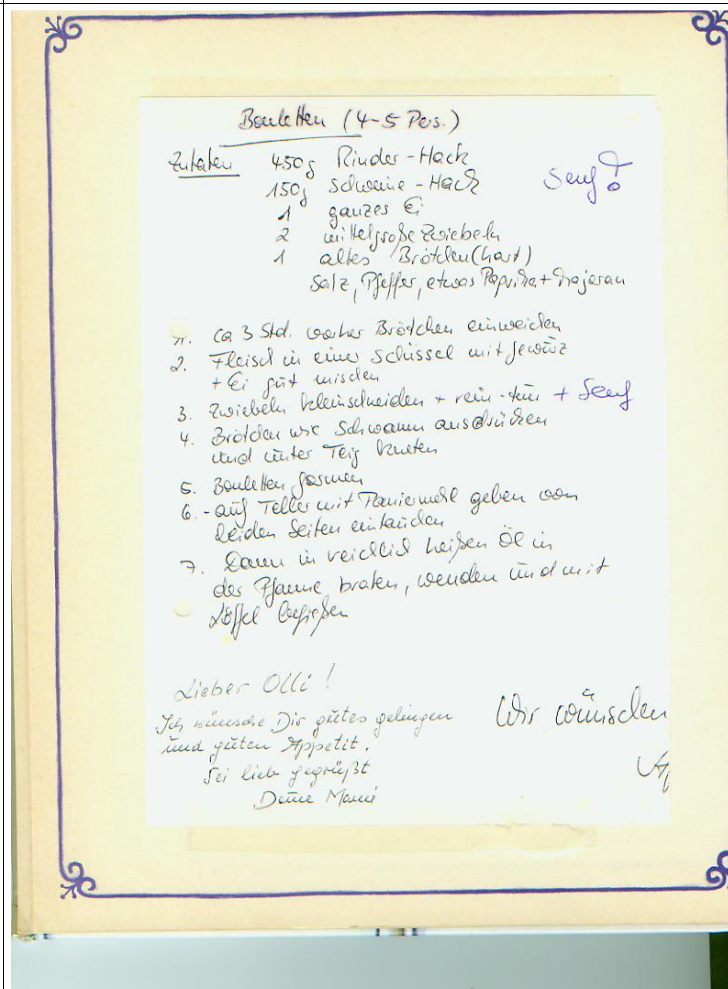 Bouletten (4-5 Pers.)
Zutaten 450g Rinder-Hack
150g Schweine-Hack
Senf!
1 ganzes Ei
2 mittelgroße Zwiebeln
1 altes Brötchen (hart)
Salz, Pfeffer, etwas Paprika + Majoran
1. Ca 3 Std. vorher Brötchen einweichen
2. Fleisch in einer Schüssel mit Gewürz
+ Ei gut mischen
3. Zwiebeln kleinschneiden + rein-tun + Senf
4. Brötchen wie Schwamm ausdrücken
und unter Teig kneten
5. Bouletten formen
6. - auf Teller mit Paniermehl geben von
beiden Seiten eintauchen
7. Dann in reichlich heißen Öl in
der Pfanne braten, wenden und mit
Löffel begießen
Lieber Olli!
Ich wünsche Dir gutes gelingen
und guten Appetit.
Sei lieb gegrüßt
Deine Mami
Wir wünschen